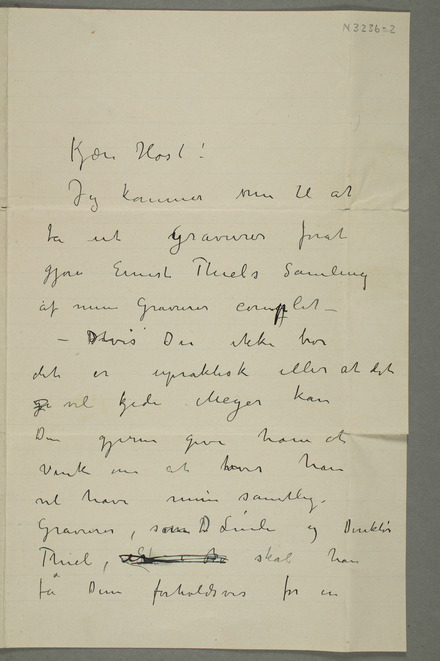 N 3236-2
Kjære Høst!
Jeg kommer nu til at
ta ut Gravurer forat
gjøre Ernest Thiels Samling
af mine Gravurer complet –
– Hvis De ikke tror
det er upraktisk eller at det
vil kjede Meyer kan
De gjerne give ham et
Vink om at hvis han
vil have mine samtlig.
Gravurer, som D Linde og Direktør
Thiel, skal han
få Dem forholdsvis for en